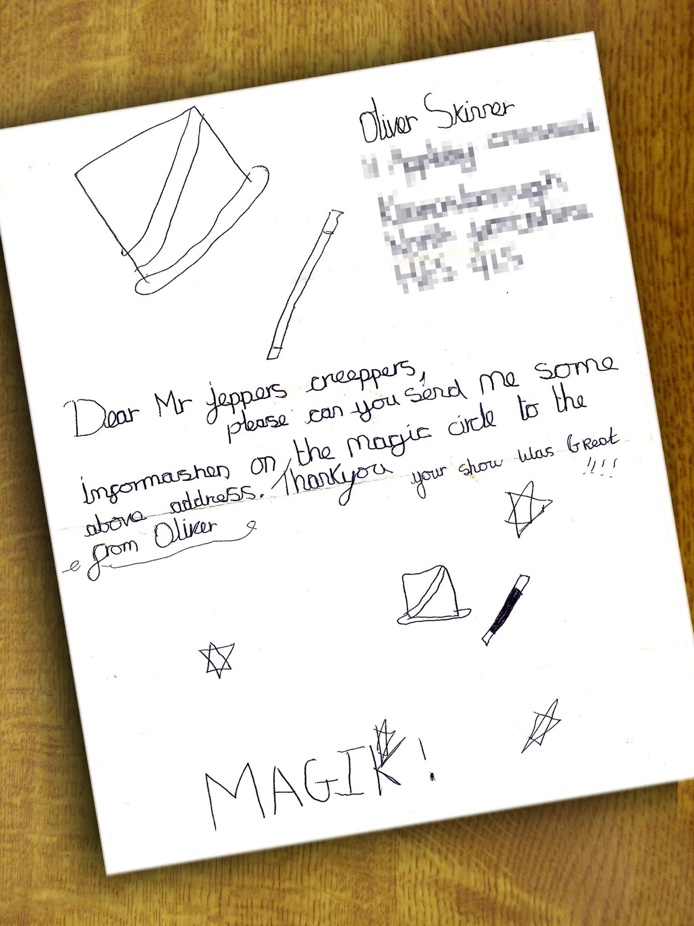 Oliver Skinner
Dear Mr jeppers creeppers,
please can you send me some
informashen on the magic circle to the
above address. Thankyou your show was Great
!!!!
from Oliver
MAGIK!